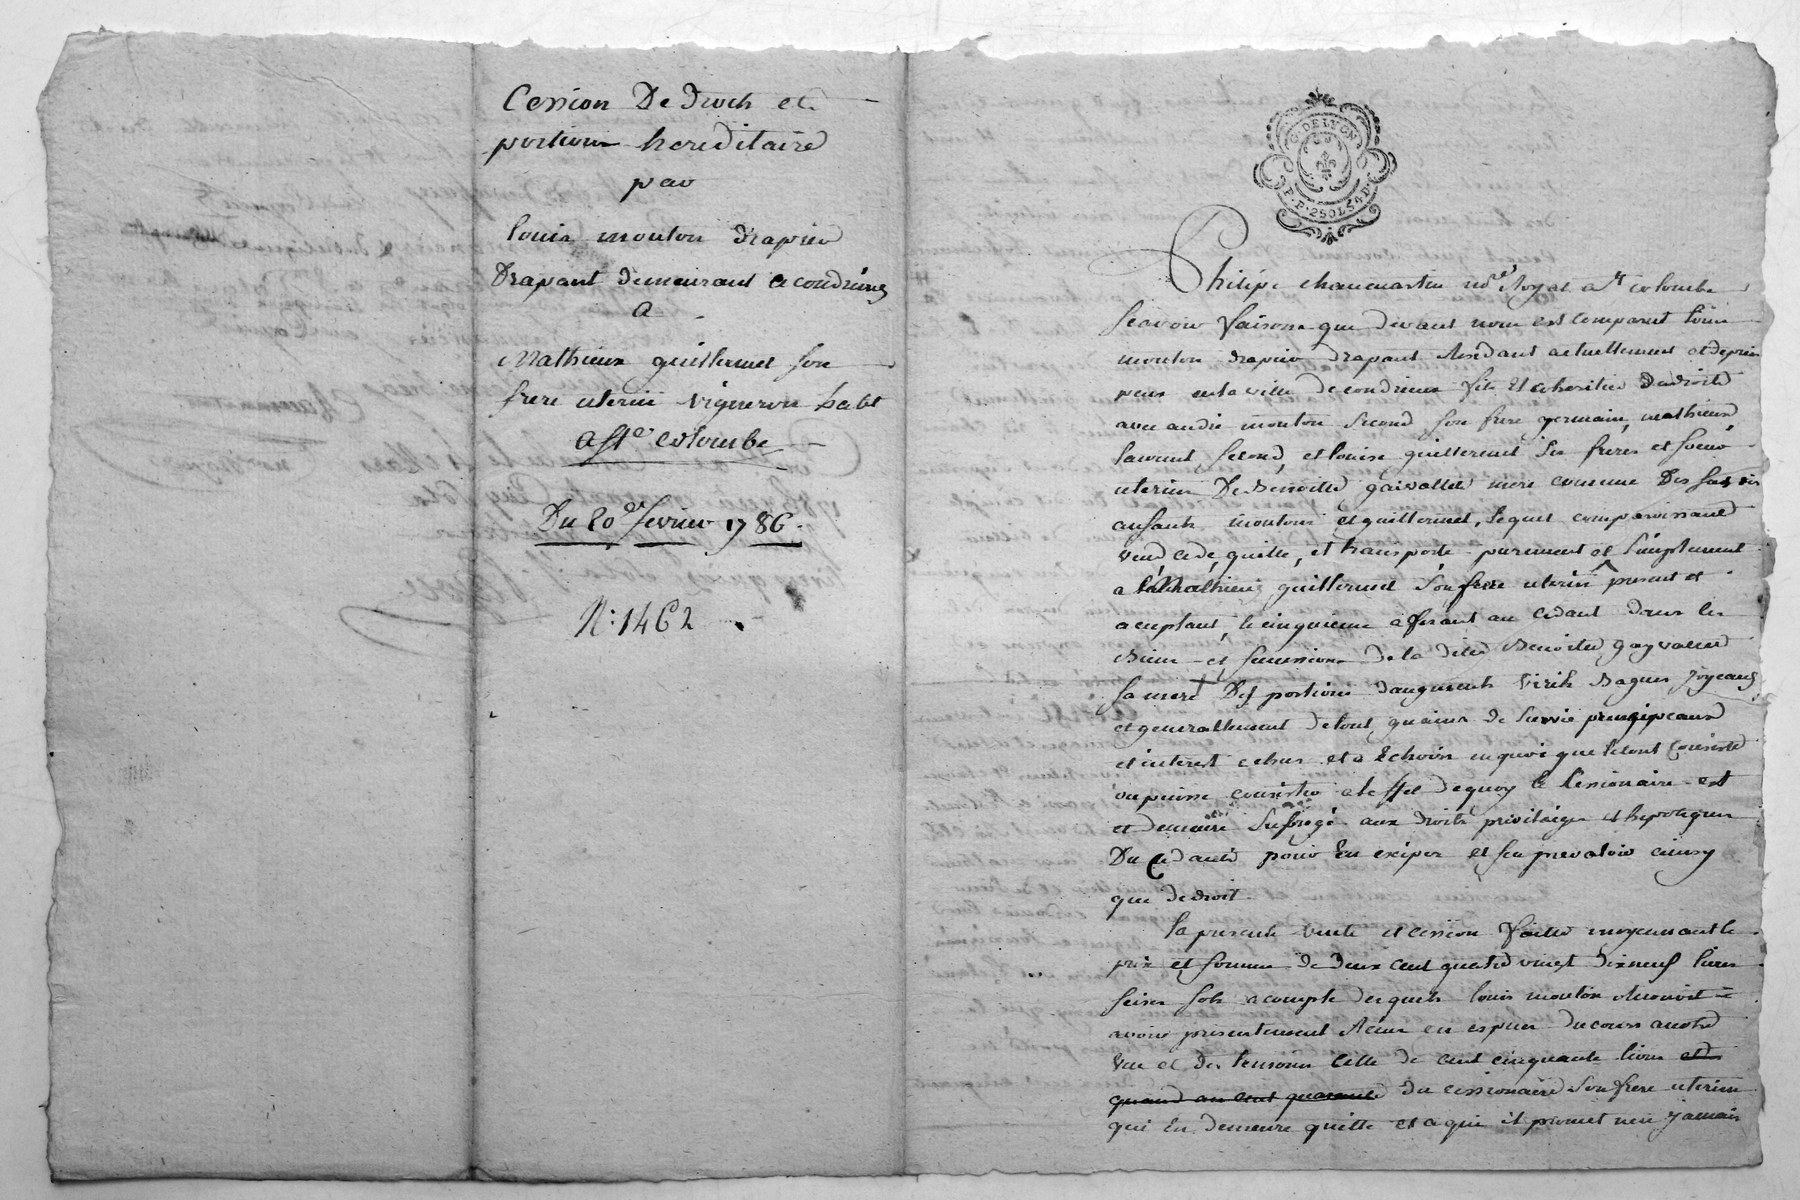 Cession De droits et
portions hereditaire
par
louis mouton drapier
Drapant demeurant a condrieux
A
Mathieux guillermet son
frere uterin vigneron habt
a Ste colombe
Du 20e fevrier 1786.
N: 1462
G. DE LYON
P. P. 2 SOLS 4 D.
Philipe chanuartin nore Royal a Ste colombe
scavoir faisons que devant nous est comparut louis
mouton drapier drapant Residant actuellement et depuis
peux en la ville de condrieux fils et coheritier de droit
avec andré mouton second son frere germain, mathieux
laurent, second, et louise guillermet ses freres et soeur
uterins De Benoitte gaivallet mere commune Des
enfants moutons et guillermet, lequel comparoissant
vend, cede, quitte, et transporte purement et simplement
a Mathieux guillermet son frere uterin present et
aceptant, le cinquieme afferant au cedant dans les
Biens et successions de la dite Benoitte gayvallet
sa mere Des portions d'augments virils Bagues joyeaux
et generallement de tout, qu'ainsi de survie principeaux
et interest echus et a Echoirs en quoi que le tout Consiste
ou puisse consister a leffet de quoy le Cessionaire est
et demeure subrogé aux droits privilaiges et hipoteques
Du Cedant pour En exiper et sen prevaloir ainsy
que de droit.
la presente vente et cession faitte moyennant le
prix et somme de deux cent quatre vingt dixneuf livres
seize sols a compte desquels louis mouton Reconoit
avoir presentement Recus en especes du cours a notre
Vue et des temoins celle de cent cinquante livres et
quand au cent quarante du cessionaire son frere uterin
qui En demeure quitte et a qui il promet n'en jamais